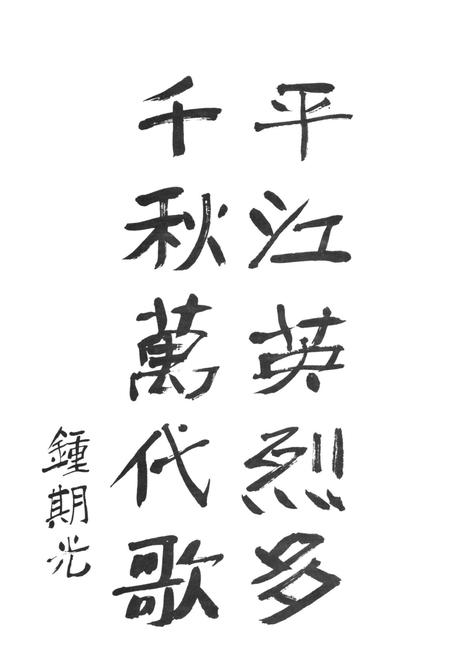 平江英烈多
千秋萬代歌
鍾期光